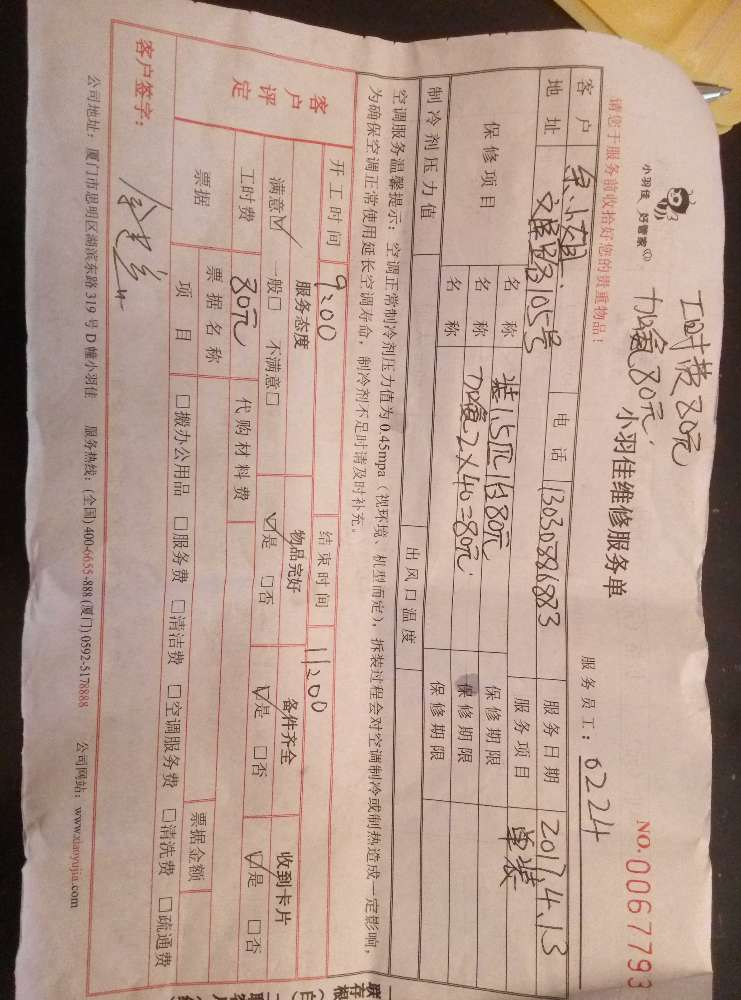 工时费80元
加氟80元
小羽佳 好管家
小羽佳维修服务单
NO. 0067793
请您于服务前收拾好您的贵重物品!
服务员工: 6224
客户 电话 13030886883 服务日期 2017.4.13
地址 105号 服务项目 单装
保修项目 名称 装1.5匹1台80元 保修期限
名称 加氟2×40=80元 保修期限
名称 保修期限
制冷剂压力值 出风口温度
空调服务温馨提示: 空调正常制冷剂压力值为0.45mpa(视环境、机型而定), 拆装过程会对空调制冷或制热造成一定影响,
为确保空调正常使用延长空调寿命, 制冷剂不足时请及时补充。
开工时间 9:00 结束时间 11:00
客户评定 服务态度 物品完好 备件齐全 收到卡片
满意☑ 一般□ 不满意□ ☑是 □否 ☑是 □否 ☑是 □否
工时费 80元 代购材料费
票据 票据名称 票据金额
项目 □搬办公用品 □服务费 □清洁费 □空调服务费 □清洗费 □疏通费
客户签字:
公司地址: 厦门市思明区湖滨东路319号D幢小羽佳 服务热线: (全国)400-6655-888 (厦门) 0592-5178888 公司网站: www.xiaoyujia.com